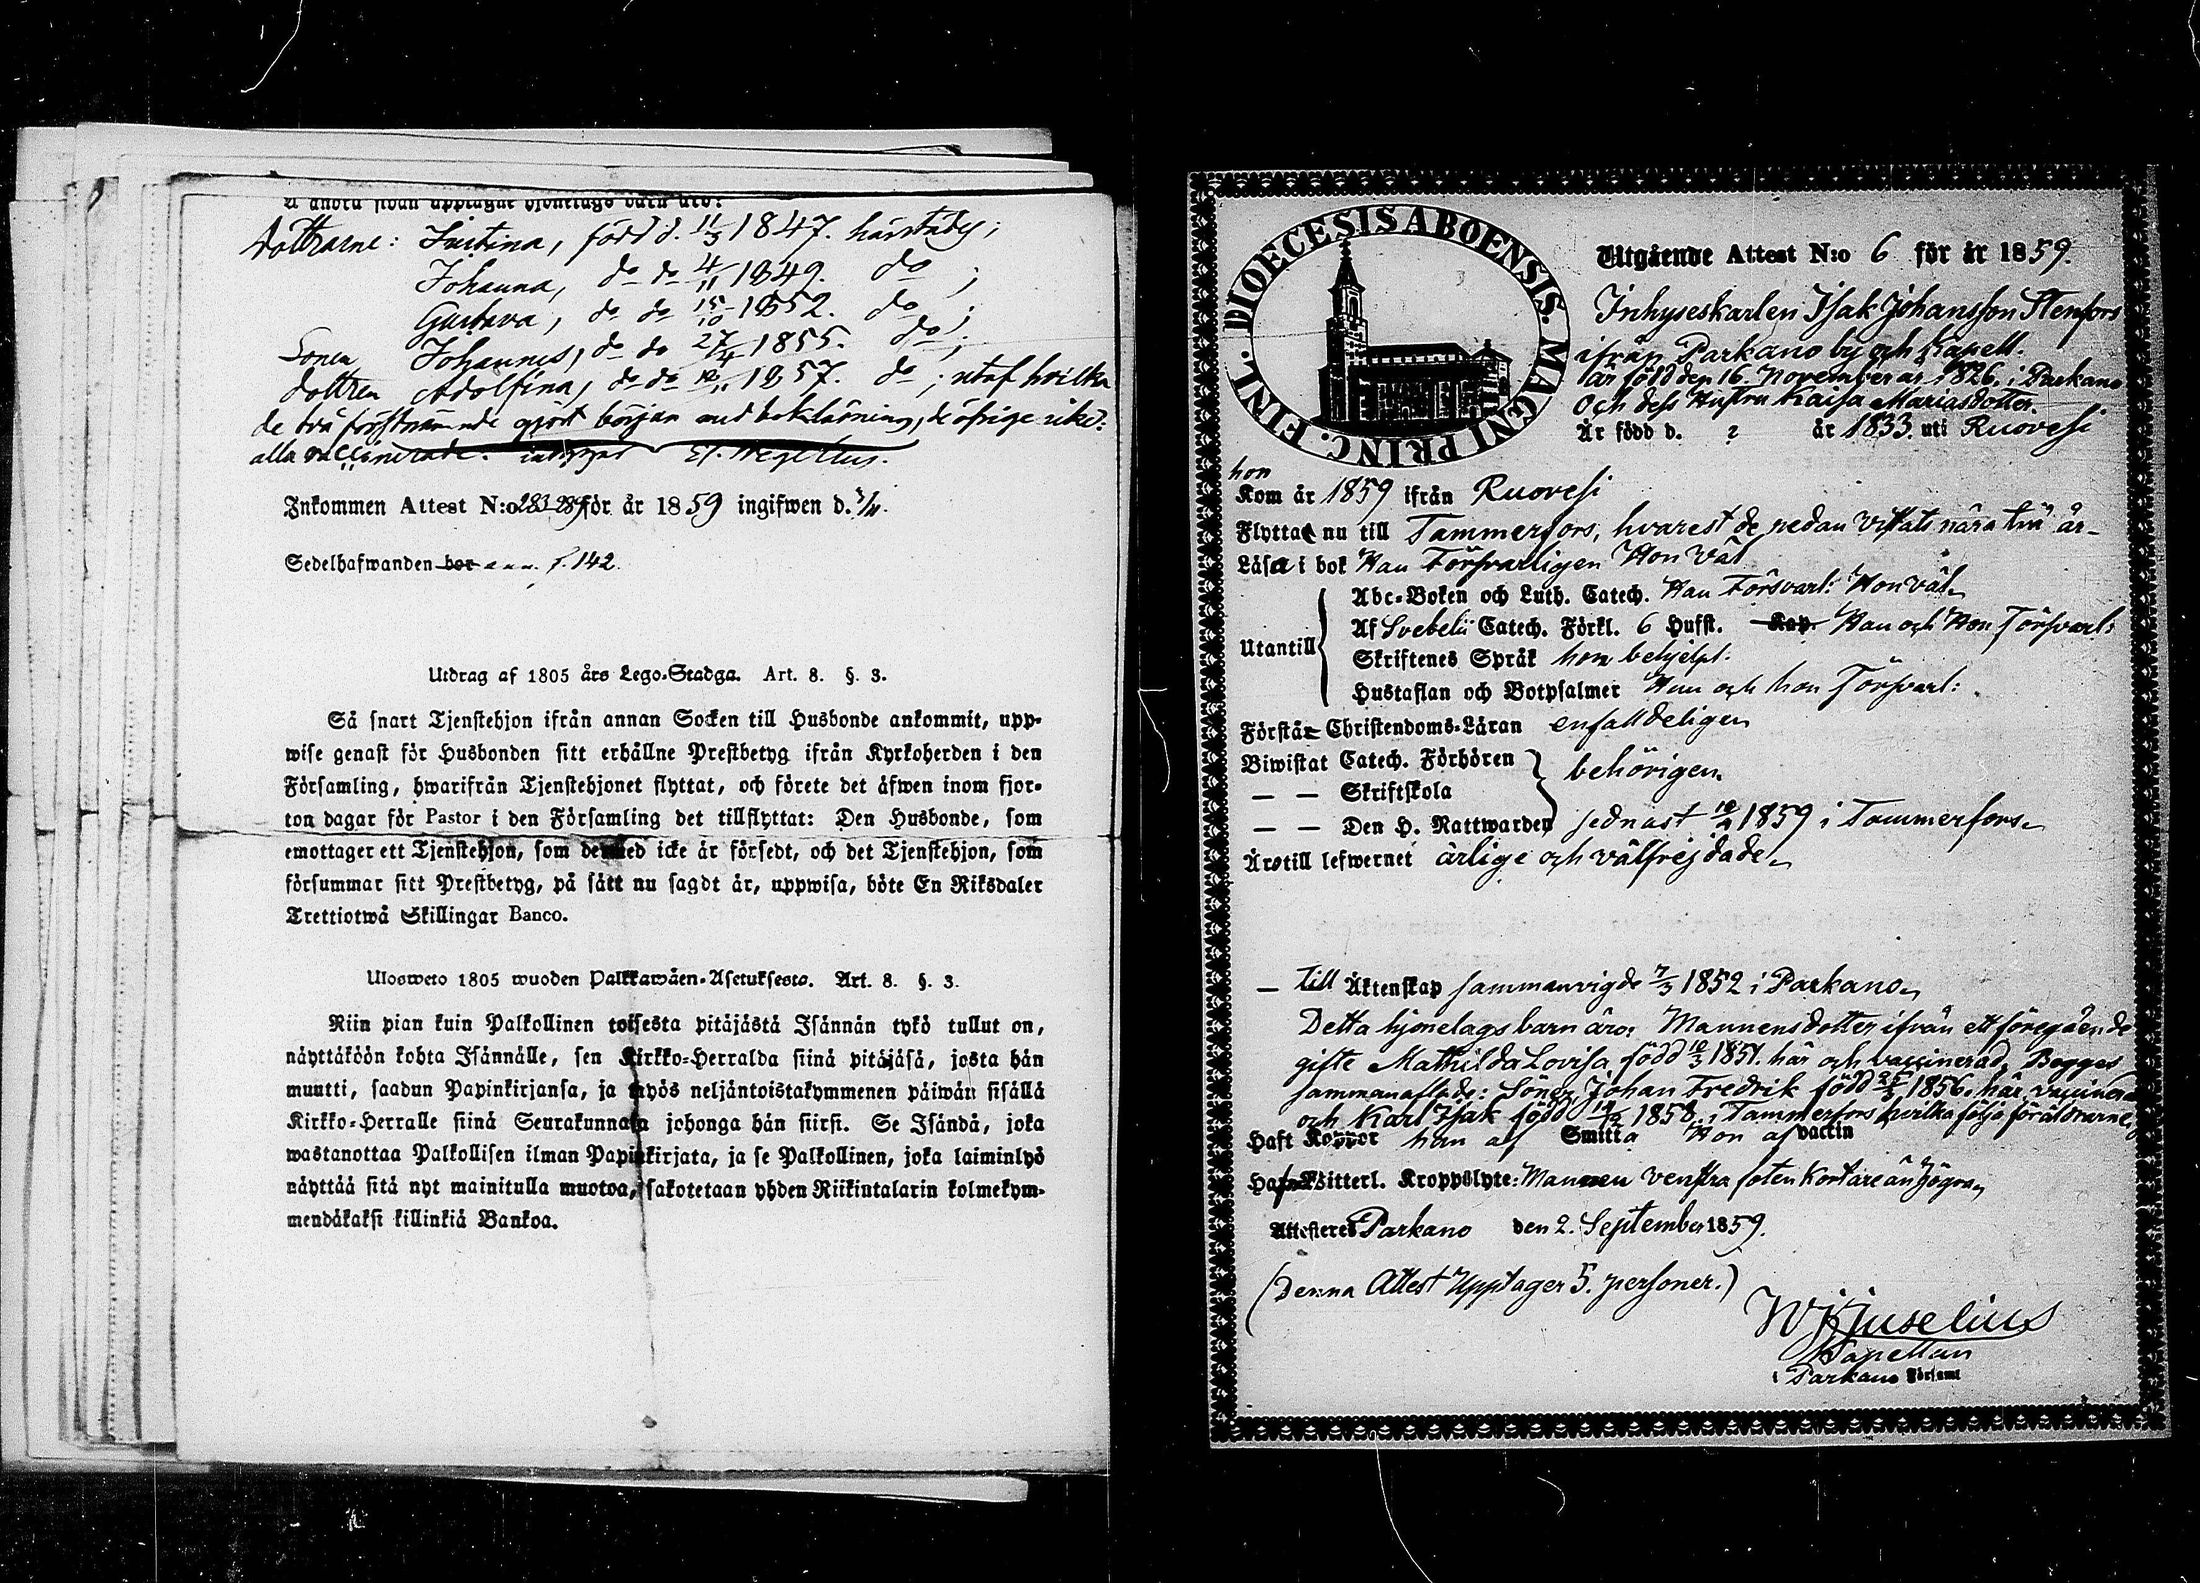 å andra sidan upptagne hjonelags barn äro:
Döttrarne: Justina, född d. 11/3 1847. härstädes;
Johanna, do do 4/11 1849. do ;
Gustava, do do 15/10 1852. do ;
Sonen Johannes, do do 27/4 1855. do ;
dottren Adolfina, do do 1857. do ; utaf hvilka
de två förstnämnde gjort början med bokläsning, de öfrige icke:
alla vaccinerade.
Inkommen Attest N:o 283-289 för år 1859 ingifwen d.
Sedelhafwanden bor f. 142.
Utdrag af 1805 års Lego-Stadga. Art. 8. §. 3.
Så snart Tjenstehjon ifrån annan Socken till Husbonde ankommit, upp-
wise genast för Husbonden sitt erhållne Prestbetyg ifrån Kyrkoherden i den
Församling, hwarifrån Tjenstehjonet flyttat, och förete det äfwen inom fjor-
ton dagar för Pastor i den Församling det tillflyttat: Den Husbonde, som
emottager ett Tjenstehjon, som dermed icke är försedt, och det Tjenstehjon, som
försummar sitt Prestbetyg, på sätt nu sagdt är, uppwisa, böte En Riksdaler
Trettiotwå Skillingar Banco.
Ulosweto 1805 wuoden Palkkawäen-Asetuksesta. Art. 8. §. 3.
Niin pian kuin Palkollinen toisesta pitäjästä Isännän tykö tullut on,
näyttäköön kohta Isännälle, sen Kirkko-Herralda siinä pitäjäsä, josta hän
muutti, saadun Papinkirjansa, ja myös neljäntoistakymmenen päiwän sisällä
Kirkko-Herralle siinä Seurakunnasa johonga hän siirsi. Se Isändä, joka
wastanottaa Palkollisen ilman Papinkirjata, ja se Palkollinen, joka laiminlyö
näyttää sitä nyt mainitulla muotoa, sakotetaan yhden Riikintalarin kolmekym-
mendäkaksi killinkiä Bankoa.
DIOECESIS ABOENSIS. MAGNI PRINC. FINL.
Utgående Attest N:o 6 för år 1859.
Inhyseskarlen Isak Johansson Stenfors
ifrån Parkano by och kapell.
är född den 16. November år 1826. i Parkano
Och dess Hustru Kaisa Mariasdotter.
Är född d. ? år 1833. uti Ruovesi
hon
Kom år 1859 ifrån Ruovesi
Flyttat nu till Tammerfors, hvarest de redan vistats nära två år
Läsa i bok Han Försvarligen Hon väl
Abc-Boken och Luth. Catech. Han Försvarl: Hon väl
Utantill
Af Svebelii Catech. Förkl. 6 Hufst. Kap. Han och Hon Försvarl:
Skriftenes Språk hon behjelpl.
Hustaflan och Botpsalmer Han och hon Försvarl:
Förstår Christendoms-Läran enfalldeligen
Biwistat Catech. Förhören
— — Skriftskola
behörigen
— — Den H. Nattwarden sednast 1859 i Tammerfors
Äro till lefwernet ärlige och välfrejdade
— till Äktenskap sammanvigde 7/3 1852 i Parkano
Detta hjonelags barn äro: Mannens dotter ifrån ett föregående
gifte Mathilda Lovisa, född 10/3 1851. här och vaccinerad, Begges
sammanaflade: Söner, Johan Fredrik född 1856. här, vaccinerad
och Karl Isak född 1858. i Tammerfors hvilka följa föräldrarne
Haft Koppor han af Smitta Hon af vaccin
Witterl. Kroppslyte: Mannen venstra foten kortare än högra
Attesteres Parkano den 2. September 1859.
(Denna Attest Upptager 5. personer.)
W Juselius
Kapellan
i Parkano Församl